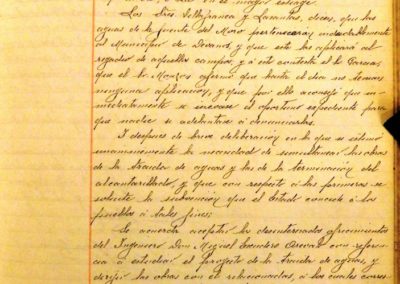 Los Sres. Villafranca y Lacuntas, dicen, que las
aguas de la fuente del Moro pertenecerán indudablemente
al Municipio de y que este las aplicará al
regadío de aquellos campos, y á esto contesta el Sr.
que el Sr. afirmó que hasta el dia no tenian
ninguna aplicacion, y que por ello aconsejó que in-
mediatamente se incoase el oportuno espediente para
que nadie se adelantase á denunciarlas.
Y despues de breve deliberacion en la que se estimó
unanimemente la necesidad de simultanear las obras
de la traida de aguas y las de la terminacion del
alcantarillado y que con respecto á las primeras se
solicite la subvencion que el Estado concede á los
pueblos á tales fines;
Se acuerda aceptar los desinteresados ofrecimientos
del Ingeniero Don Miguel con referen-
cia á estudiar el proyecto de la traida de aguas, y
dirijir las obras con el relacionadas, á los cuales corres-